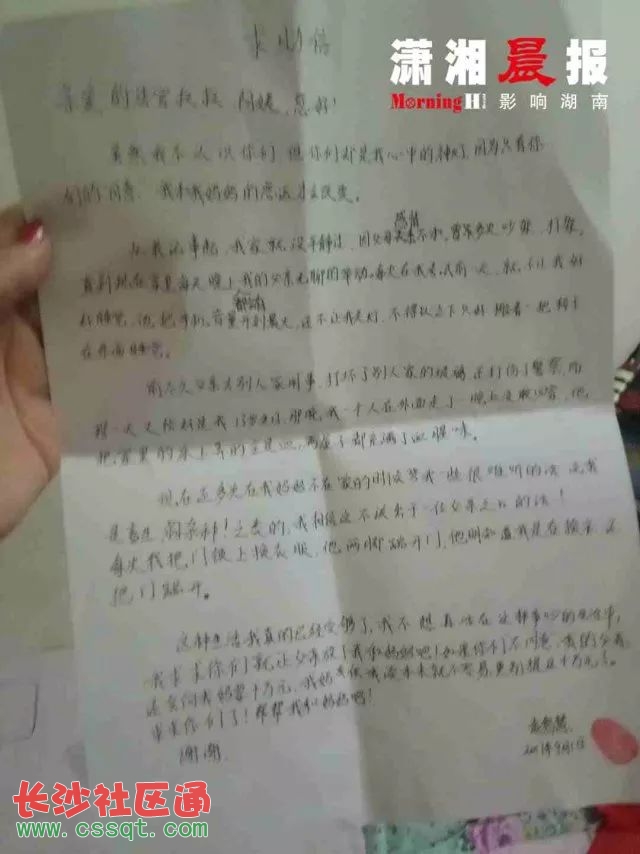 潇湘晨报
Morning H
影响湖南
求助信
亲爱的法官叔叔 阿姨, 您好!
虽然我不认识你们, 但你们却是我心中的神, 因为只有你
们的同意 我和我妈妈的命运才会改变。
从我记事起, 我家就没平静过, 因父母感情不和, 曾多次吵架、打架。
直到现在 每天晚上我的父亲无聊的举动, 每次在我考试前一天, 就不让我好
好睡觉, 他把手机音量开到最大, 还不让我关灯, 不得以之下只好搬着一把椅子
在外面睡觉。
前不久父亲去别人家闹事, 打坏了别人家的玻璃 还打伤了警察, 而
那一天又恰好是我13岁生日, 那晚, 我一个人在外面走了一晚上没敢回家, 他
把家里的床上弄的全是血, 两屋子都充满了血腥味。
现在还多次在我妈妈不在家的时候骂我一些很难听的话 说我
是畜生 杂种!之类的, 我相信这不该出于一位父亲之口的话!
每次我把门锁上换衣服, 他两脚踢开门, 他明知道我是在换衣 还
把门踢开。
这种生活我真的已经受够了, 我不想再活在这种争吵的生活中,
我求求你们就让父亲放了我和妈妈吧!如果你们不同意, 我的父亲
还要问我妈要十万元, 我妈 供我读书本就不容易, 更别提这十万元了。
求求你们了!帮帮我和妈妈吧!
谢谢
长沙社区通
www.cssqt.com